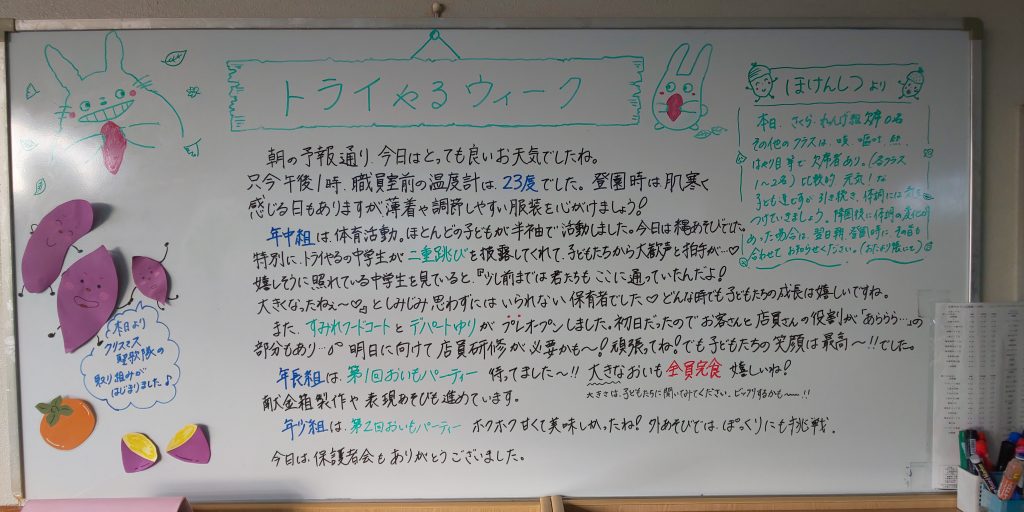 トライやるウィーク
朝の予報通り、今日はとっても良いお天気でしたね。
只今午後1時、職員室前の温度計は、23度でした。登園時は肌寒く
感じる日もありますが薄着や調節しやすい服装を心がけましょう!
年中組は、体育活動。ほとんどの子どもが半袖で活動しました。今日は縄あそびとで。
特別に、トライやるの中学生が二重跳びを披露してくれて、子どもたちから大歓声と拍手が…♡
嬉しそうに照れている中学生を見ていると、『少し前までは君たちもここに通っていたんだよ!
大きくなったねぇ〜♡』としみじみ思わずにはいられない保育者でした♡どんな時でも子どもたちの成長は嬉しいですね。
また、すみれフードコートとデパートゆりがプレオープンしました。初日だったのでお客さんと店員さんの役割が「あららら…」の
部分もあり…。明日に向けて店員研修が必要かも〜!頑張ってね!でも子どもたちの笑顔は最高〜!!でした。
年長組は、第1回おいもパーティー 待ってました〜!! 大きなおいも全員完食 嬉しいね!
献金箱製作や表現あそびも進めています。
大きさは、子どもたちに聞いてみてください。ビックリするかも〜!!
年少組は、第2回おいもパーティー ホクホク甘くて美味しかったね!外あそびでは、ぽっくりにも挑戦。
今日は、保護者会もありがとうございました。
ほけんしつより
本日、さくら、れんげ組欠席0名
その他のクラスは、咳、嘔吐、
はやり目等で欠席者あり。(各クラス
1〜2名)比較的元気な
子ども達ですが引き続き、体調には気を
つけていきましょう。降園後に体調の変化が
あった場合は、翌日朝登園時に、その旨も
合わせてお知らせください。(おたより帳にて)
本日より
クリスマス
聖歌隊の
取り組みが
はじまりました♪